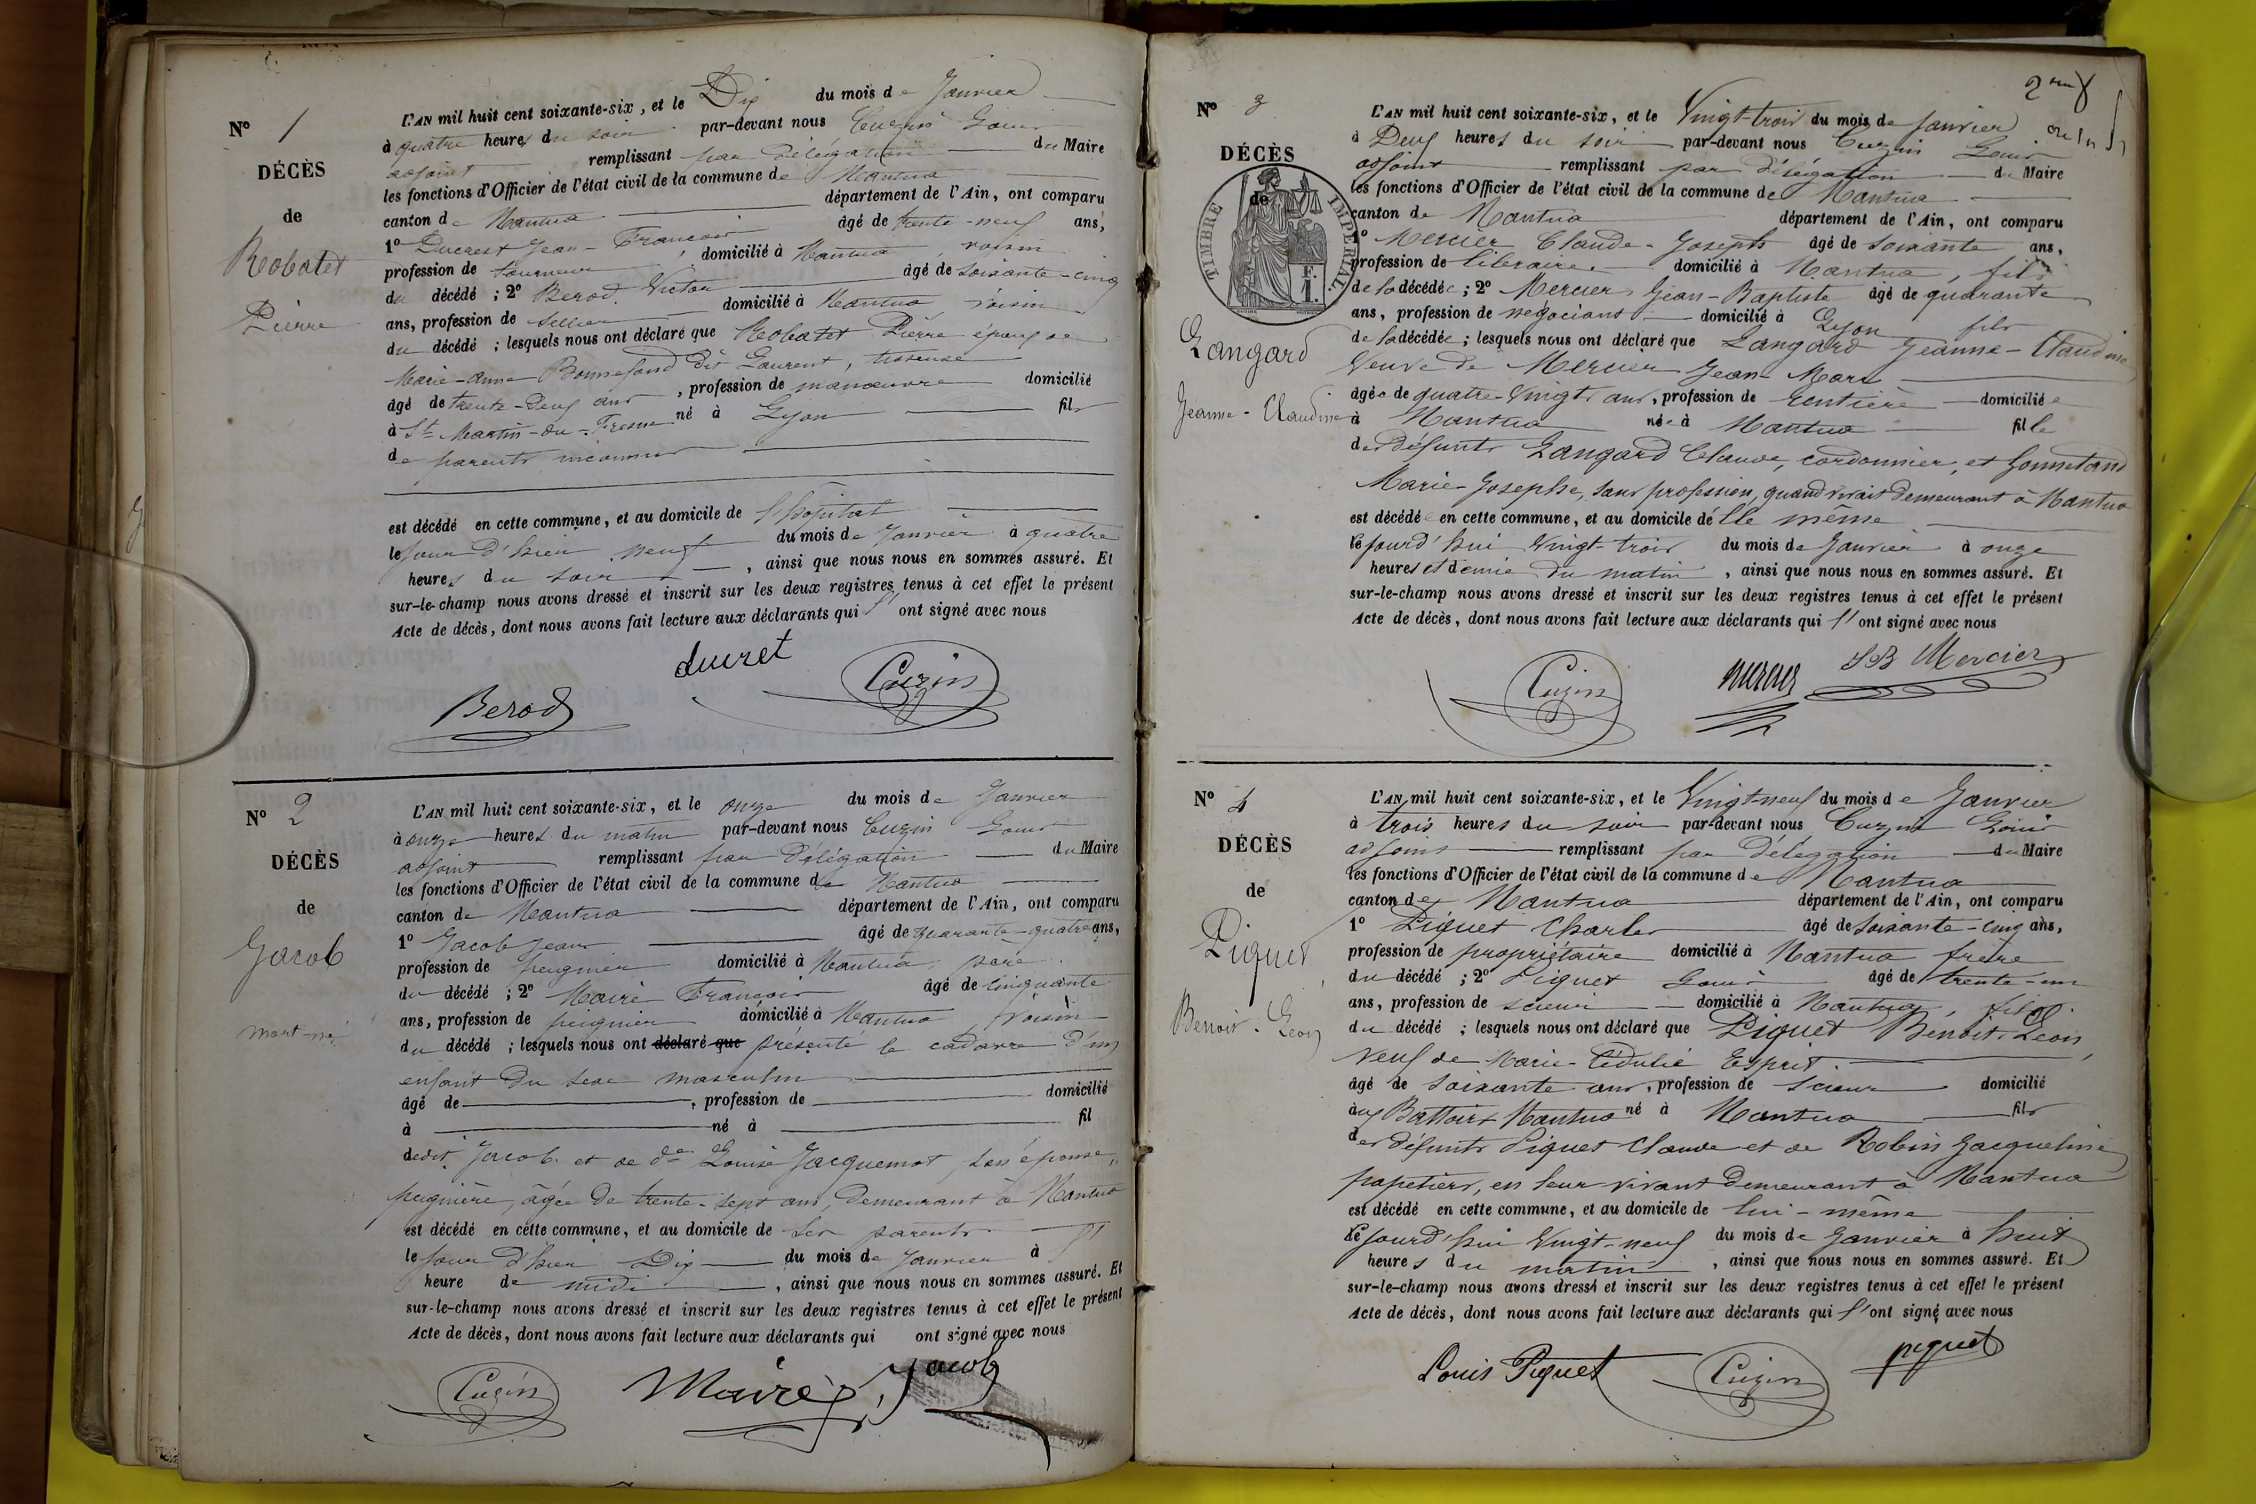 N° 1
DÉCÈS
de
Robatet
Pierre
L'AN mil huit cent soixante-six, et le Dix du mois de Janvier
à quatre heures du soir par-devant nous Cuzin Louis
adjoint remplissant par délégation du Maire
les fonctions d'Officier de l'état civil de la commune de Nantua
canton de Nantua département de l'Ain, ont comparu
1° Ducrest Jean-François âgé de trente-neuf ans,
profession de tourneur, domicilié à Nantua voisin
du décédé; 2° Berod Victor âgé de soixante-cinq
ans, profession de sellier domicilié à Nantua voisin
du décédé; lesquels nous ont déclaré que Robatet Pierre époux de
Marie-Anne Bonnefond dit Laurent,
âgé de trente-deux ans, profession de manœuvre domicilié
à St Martin-du-Fresne né à Lyon fils
de parents inconnus
est décédé en cette commune, et au domicile de l'hôpital
le jour d'hier neuf du mois de Janvier à quatre
heures du soir, ainsi que nous nous en sommes assuré. Et
sur-le-champ nous avons dressé et inscrit sur les deux registres tenus à cet effet le présent
Acte de décès, dont nous avons fait lecture aux déclarants qui l'ont signé avec nous
ducret
Berod
Cuzin
N° 2
DÉCÈS
de
Jacob
mort-né
L'AN mil huit cent soixante-six, et le onze du mois de Janvier
à onze heures du matin par-devant nous Cuzin Louis
adjoint remplissant par délégation du Maire
les fonctions d'Officier de l'état civil de la commune de Nantua
canton de Nantua département de l'Ain, ont comparu
1° Jacob Jean âgé de quarante-quatre ans,
profession de peignier domicilié à Nantua, père
du décédé; 2° Mairé François âgé de cinquante
ans, profession de peignier domicilié à Nantua, voisin
du décédé; lesquels nous ont déclaré que présenté le cadavre d'un
enfant du sexe masculin
âgé de, profession de domicilié
à né à fil
dedit Jacob et de de Louise Jacquemot, son épouse,
peignière, âgée de trente-sept ans, demeurant à Nantua
est décédé en cette commune, et au domicile de ses parents
le jour d'hier Dix du mois de Janvier à
heure de midi, ainsi que nous nous en sommes assuré. Et
sur-le-champ nous avons dressé et inscrit sur les deux registres tenus à cet effet le présent
Acte de décès, dont nous avons fait lecture aux déclarants qui ont signé avec nous
Cuzin
Mairé
Jacob
N° 3
DÉCÈS
de
TIMBRE IMPÉRIAL
Langard
Jeanne-Claudine
L'AN mil huit cent soixante-six, et le Vingt-trois du mois de Janvier
à Deux heures du soir par-devant nous Cuzin Louis
adjoint remplissant par délégation du Maire
les fonctions d'Officier de l'état civil de la commune de Nantua
canton de Nantua département de l'Ain, ont comparu
1° Mercier Claude-Joseph âgé de soixante ans,
profession de libraire domicilié à Nantua, fils
de la décédée; 2° Mercier Jean-Baptiste âgé de quarante
ans, profession de négociant domicilié à Lyon fils
de la décédée; lesquels nous ont déclaré que Langard Jeanne-Claudine
Veuve de Mercier Jean-Marie
âgée de quatre-vingts ans, profession de rentière domiciliée
à Nantua née à Nantua fille
des défunts Langard Claude, cordonnier, et
Marie-Josephe, sans profession, quand vivait demeurant à Nantua
est décédée en cette commune, et au domicile d'elle même
le jourd'hui vingt-trois du mois de Janvier à onze
heures et demie du matin, ainsi que nous nous en sommes assuré. Et
sur-le-champ nous avons dressé et inscrit sur les deux registres tenus à cet effet le présent
Acte de décès, dont nous avons fait lecture aux déclarants qui l'ont signé avec nous
Cuzin
mercier
JB Mercier
N° 4
DÉCÈS
de
Piquet
Benoit-Léon
L'AN mil huit cent soixante-six, et le Vingt-neuf du mois de Janvier
à trois heures du soir par-devant nous Cuzin Louis
adjoint remplissant par délégation du Maire
les fonctions d'Officier de l'état civil de la commune de Nantua
canton de Nantua département de l'Ain, ont comparu
1° Piquet Charles âgé de soixante-cinq ans,
profession de propriétaire domicilié à Nantua frère
du décédé; 2° Piquet Louis âgé de trente-un
ans, profession de scieur domicilié à Nantua, fils
du décédé; lesquels nous ont déclaré que Piquet Benoit-Léon,
veuf de Marie-Cédulie Esprit
âgé de soixante ans, profession de scieur domicilié
aux Battoirs Nantua né à Nantua fils
des défunts Piquet Claude et de Robin Jacqueline
papetiers, en leur vivant demeurant à Nantua
est décédé en cette commune, et au domicile de lui-même
le jourd'hui vingt-neuf du mois de Janvier à huit
heures du matin, ainsi que nous nous en sommes assuré. Et
sur-le-champ nous avons dressé et inscrit sur les deux registres tenus à cet effet le présent
Acte de décès, dont nous avons fait lecture aux déclarants qui l'ont signé avec nous
Louis Piquet
Cuzin
piquet